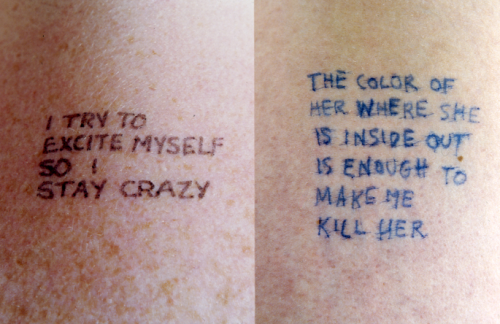 I TRY TO
EXCITE MYSELF
SO I
STAY CRAZY
THE COLOR OF
HER WHERE SHE
IS INSIDE OUT
IS ENOUGH TO
MAKE ME
KILL HER